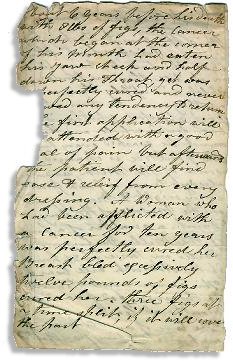 6 years before his death
with 8 lbs of figs, the cancer
which began at the corner
of his mouth had enter
his jaw cheek and half
down his throat, yet was
perfectly cured and never
had any tendency to return
a first application will
attended with a good
al of pain but afterwards
the patient will find
ease & relief from every
dressing. A woman who
had been afflicted with
a cancer for ten years
was perfectly cured her
breast bled excessively
twelve pounds of figs
cured her. three figs at
time split, if it will cover
the part